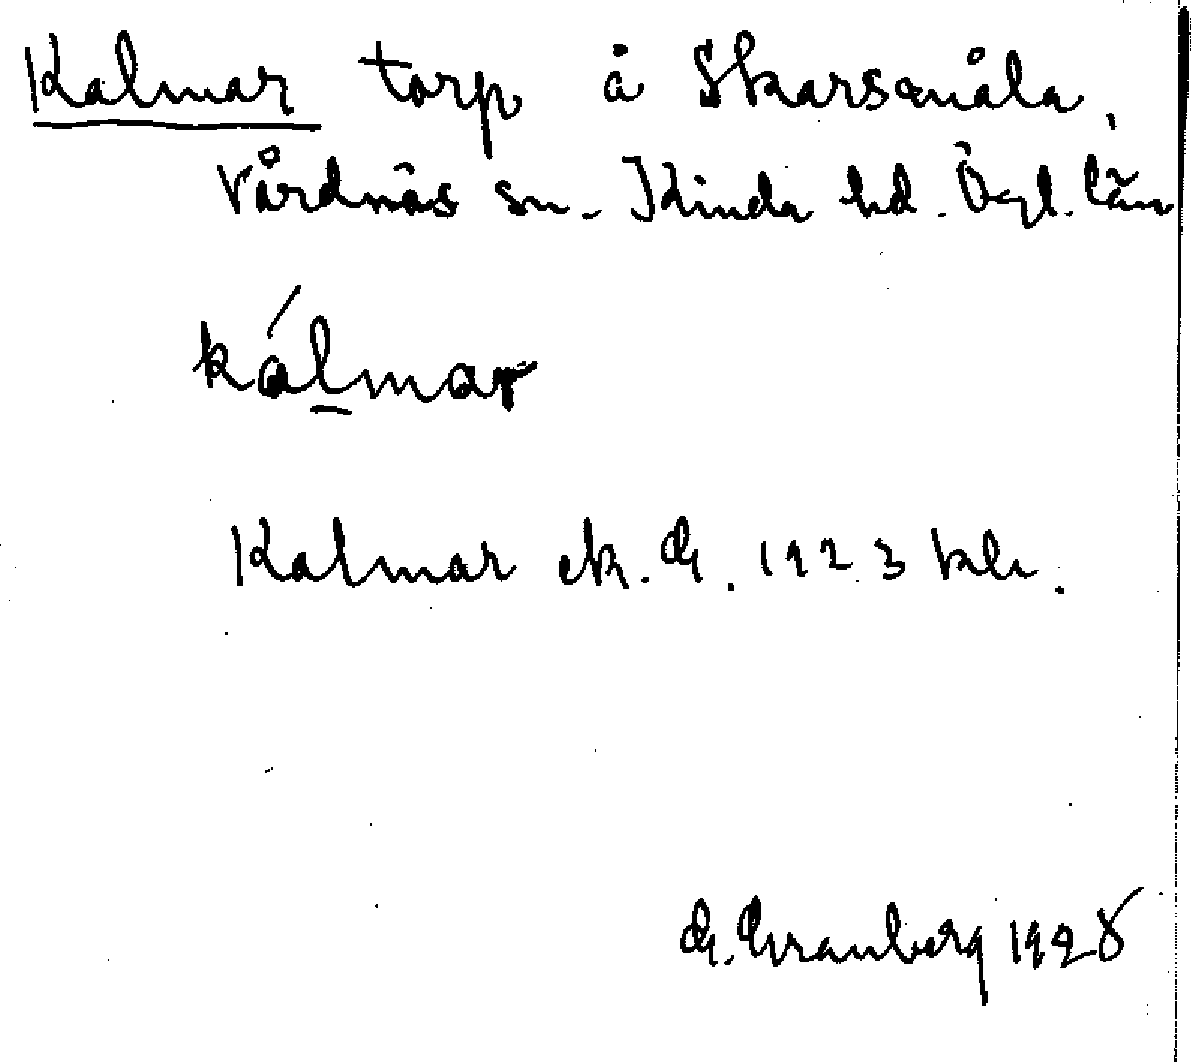 Kalmar torp å Skarsmåla,
Vårdnäs sn. Kinda hd. Ögl. län
kálmar
Kalmar ek. G. 1923 blr.
G. Granberg 1928